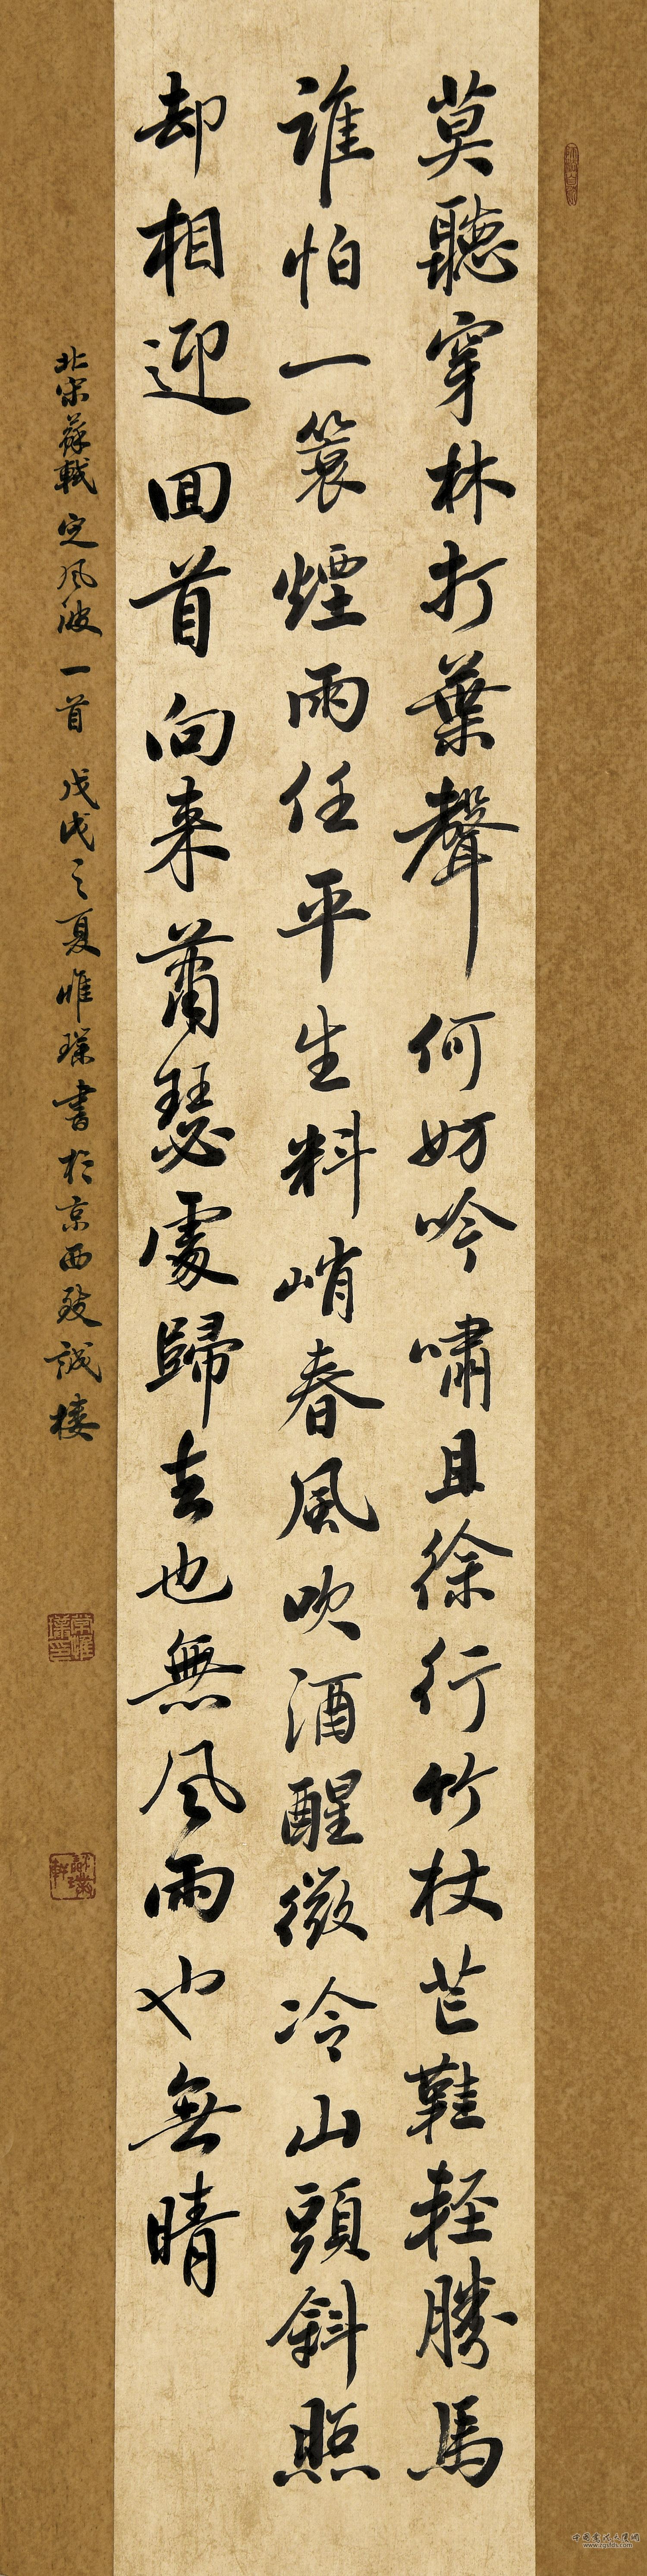 莫聽穿林打葉聲何妨吟嘯且徐行竹杖芒鞋輕勝馬
誰怕一簑煙雨任平生料峭春風吹酒醒微冷山頭斜照
却相迎回首向来蕭瑟處歸去也無風雨也無晴
北宋蘇軾定风波一首 戊戌之夏惟璞書於京西致誠楼
www.zgshds.com